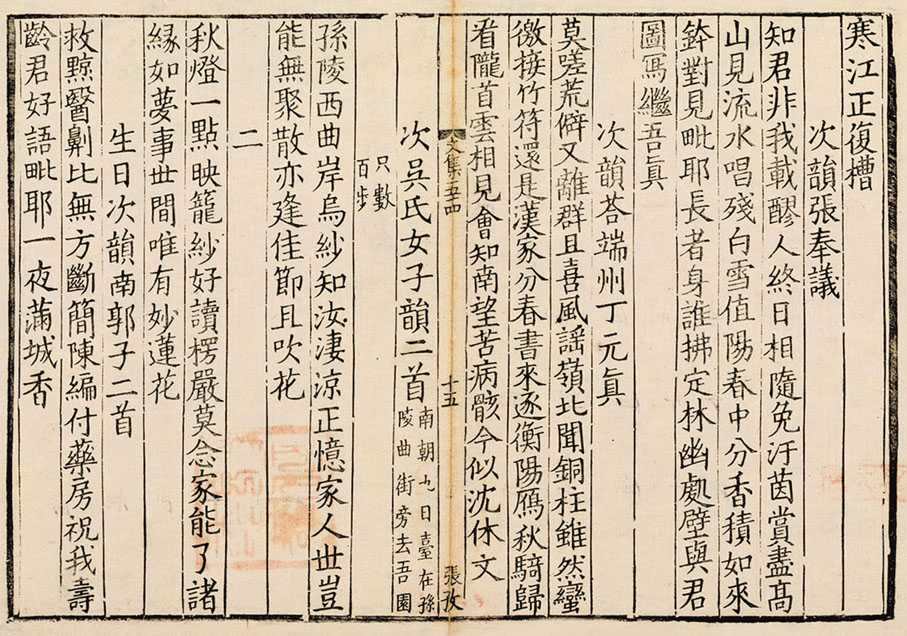 寒江正復槽
次韻張奉議
知君非我載醪人終日相隨免汙茵賞盡髙
山見流水唱殘白雪值陽春中分香積如來
鉢對見毗耶長者身誰拂定林幽處壁與君
圖寫繼吾眞
次韻荅端州丁元眞
莫嗟荒僻又離群且喜風謡嶺北聞銅柱雖然蠻
徼接竹符還是漢家分春書來逐衡陽鴈秋騎歸
看隴首雲相見會知南望苦病骸今似沈休文
文集五四 十五 張孜
次吳氏女子韻二首 南朝九日臺在孫
陵曲街旁去吾園
只數
百步
孫陵西曲岸烏紗知汝淒涼正憶家人世豈
能無聚散亦逢佳節且吹花
二
秋燈一點映籠紗好讀楞嚴莫念家能了諸
緣如夢事世間唯有妙蓮花
生日次韻南郭子二首
救黥醫劓比無方斷簡陳編付藥房祝我壽
齡君好語毗耶一夜滿城香